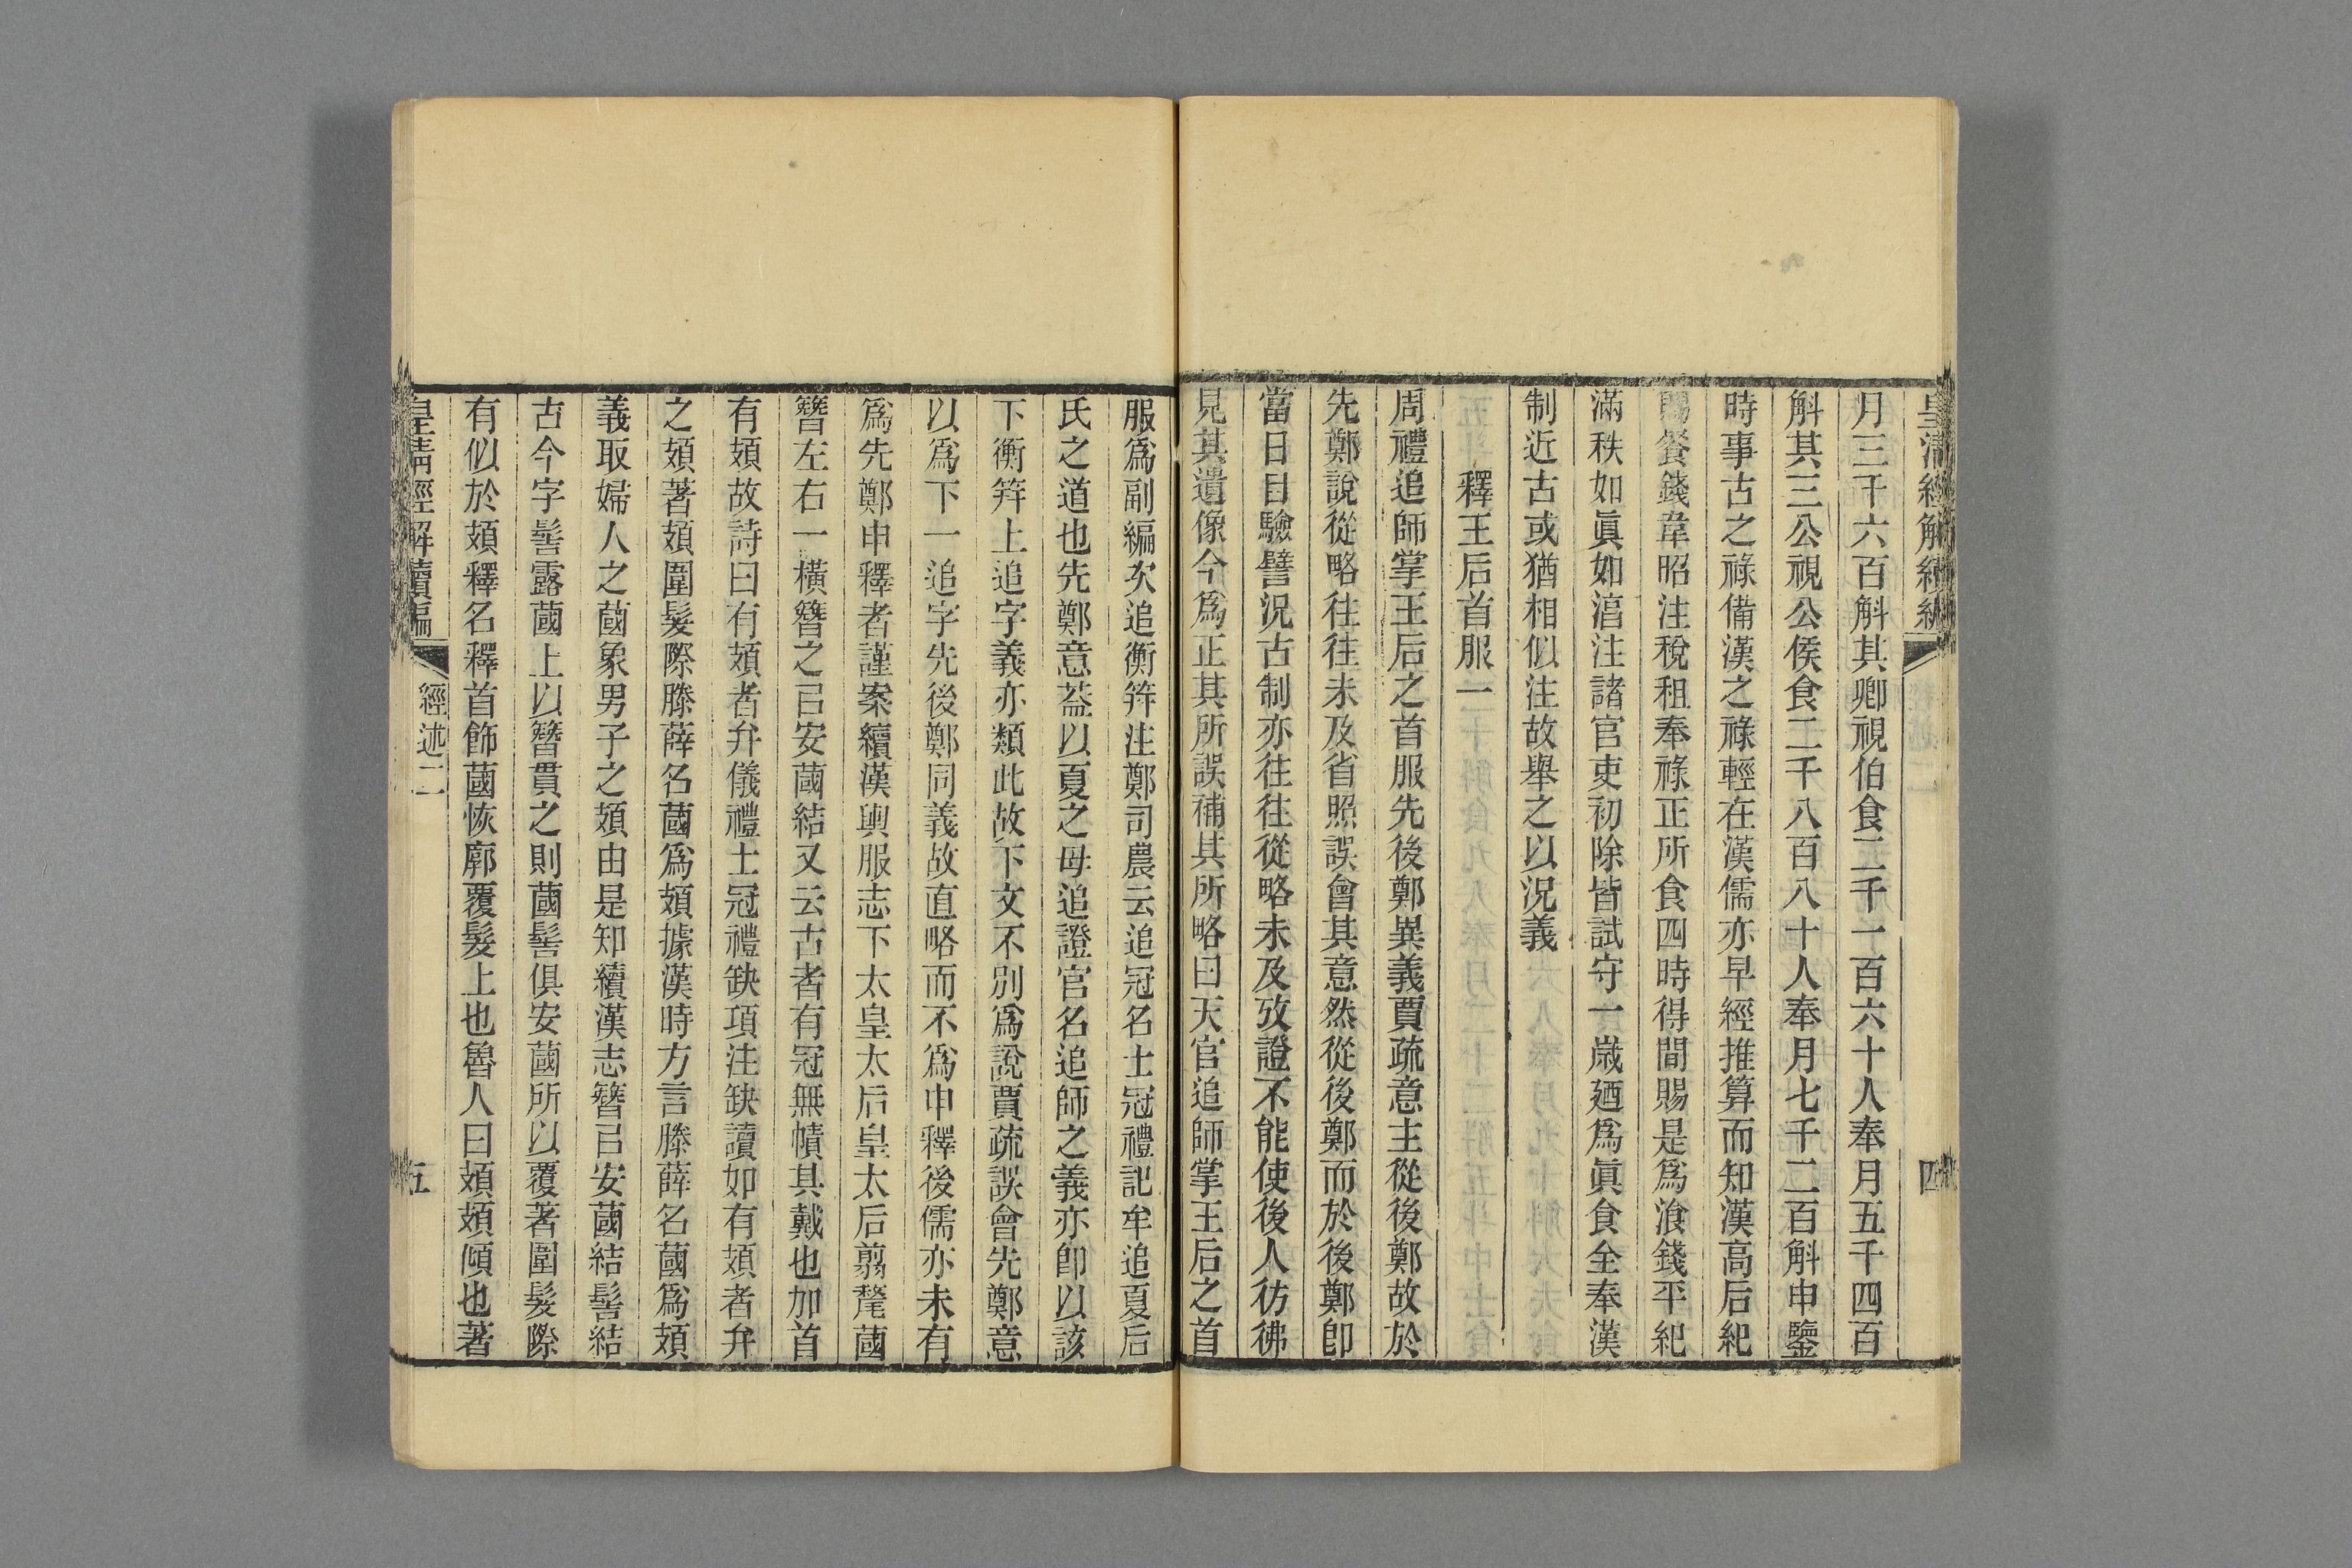 皇清經解續編
四
月三千六百斛其卿視伯食二千一百六十人奉月五千四百
斛其三公視公侯食二千八百八十人奉月七千二百斛申鑒
時事古之祿備漢之祿輕在漢儒亦早經推算而知漢高后紀
賜餐錢韋昭注稅租奉祿正所食四時得閒賜是爲飡錢平紀
滿秩如眞如湻注諸官吏初除皆試守一歲迺爲眞食全奉漢
制近古或猶相似注故舉之以況義
釋王后首服一
周禮追師掌王后之首服先後鄭異義賈疏意主從後鄭故於
先鄭說從略往往未及省照誤會其意然從後鄭而於後鄭卽
當日目驗譬況古制亦往往從略未及攷證不能使後人彷彿
見其遺像今爲正其所誤補其所略曰天官追師掌王后之首
服爲副編次追衡筓注鄭司農云追冠名士冠禮記牟追夏后
氏之道也先鄭意葢以夏之毋追證官名追師之義亦卽以該
下衡筓上追字義亦類此故下文不別爲說賈疏誤會先鄭意
以爲下一追字先後鄭同義故直略而不爲申釋後儒亦未有
爲先鄭申釋者謹案續漢輿服志下太皇太后皇太后翦氂蔮
簪左右一橫簪之㠯安蔮結又云古者有冠無幘其戴也加首
有頍故詩曰有頍者弁儀禮士冠禮缺項注缺讀如有頍者弁
之頍著頍圍髮際滕薛名蔮爲頍據漢時方言滕薛名蔮爲頍
義取婦人之蔮象男子之頍由是知續漢志簪㠯安蔮結髻結
古今字髻露蔮上以簪貫之則蔮髻俱安蔮所以覆著圍髮際
有似於頍釋名釋首飾蔮恢廓覆髮上也魯人曰頍頍傾也著
皇清經解續編
經述二
五